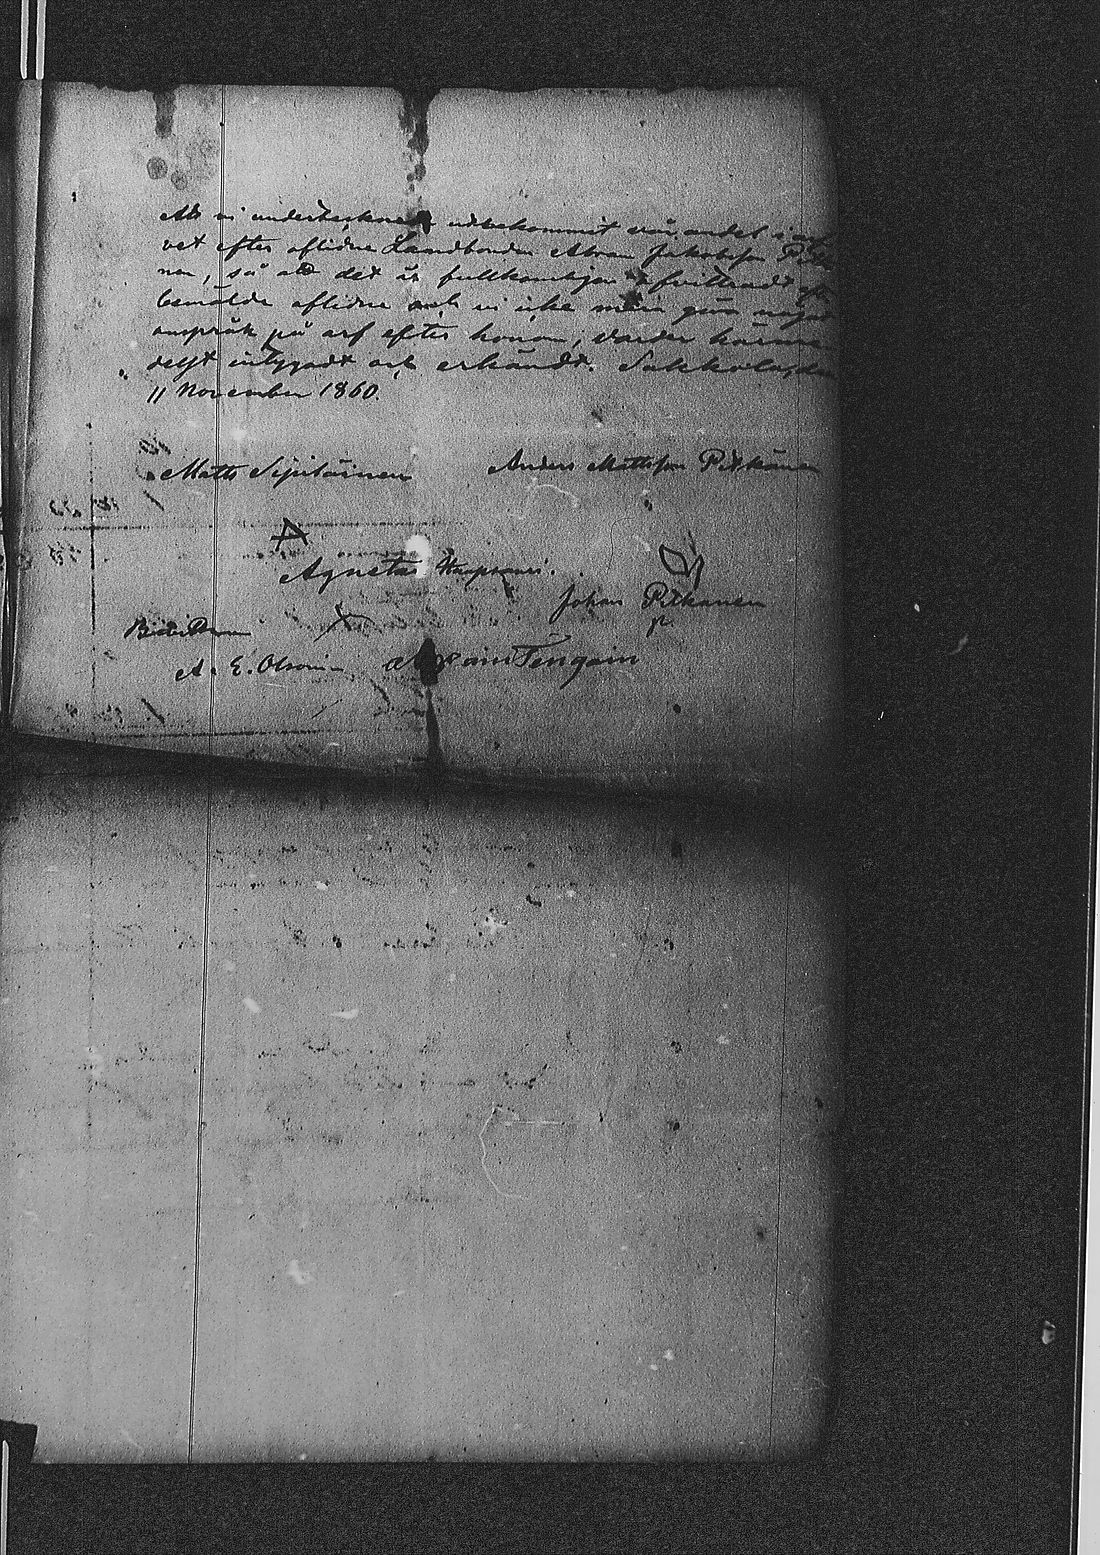 Att vi undertecknade utbekommit vår andel i ar-
vet efter aflidne Landbonden Abram Jakobsson Pitkä
nen, så att det är fullkomligen qvitteradt af
bemälde aflidne och vi icke mera göra något
anspråk på arf efter honom, varder härme
delst intygadt och erkändt. Sakkola, den
11 November 1860.
Matts Sipiläinen Anders Mattsson Pitkänen
Agneta
Johan Pitkänen
Bevittna
A. E. Olsoni